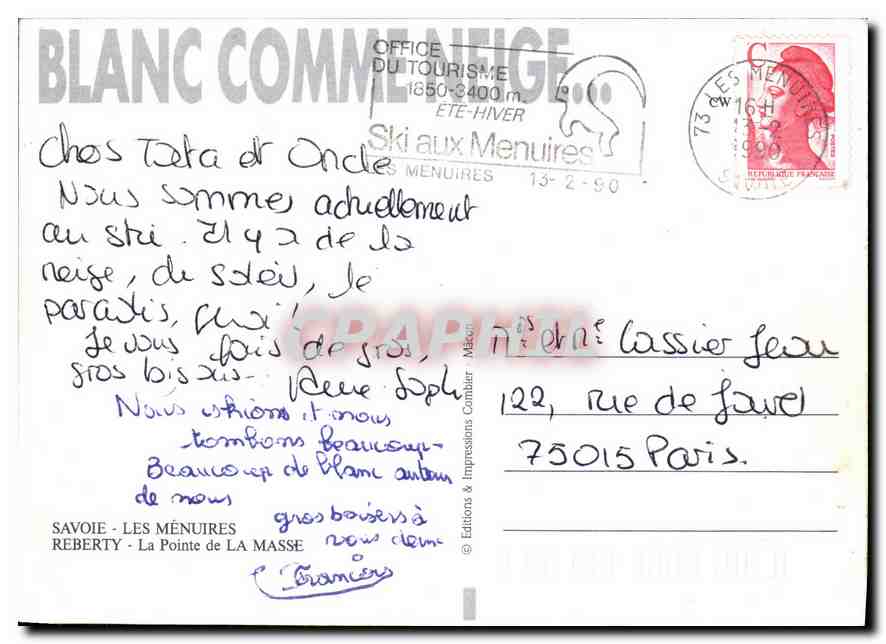 BLANC COMME NEIGE...
OFFICE
DU TOURISME
1850-3400 m.
ÉTÉ-HIVER
Ski aux Menuires
LES MENUIRES 13-2-90
73 LES MENUIRES
16 H
13-2
1990
SAVOIE
C
REPUBLIQUE FRANÇAISE
Chers Tata et Oncle
Nous sommes actuellement
au ski. Il y a de la
neige, du soleil, le
paradis, quoi!
Je vous fais de gros,
gros bisous.
Anne Soph
Nous skions et nous
tombons beaucoup.
Beaucoup de blanc autour
de nous
gros baisers à
vous deux
Francois
SAVOIE - LES MÉNUIRES
REBERTY - La Pointe de LA MASSE
© Editions & Impressions Combier - Mâcon
CPAPHIL
Mr et Me Cassier Jean
122, rue de Javel
75015 Paris.